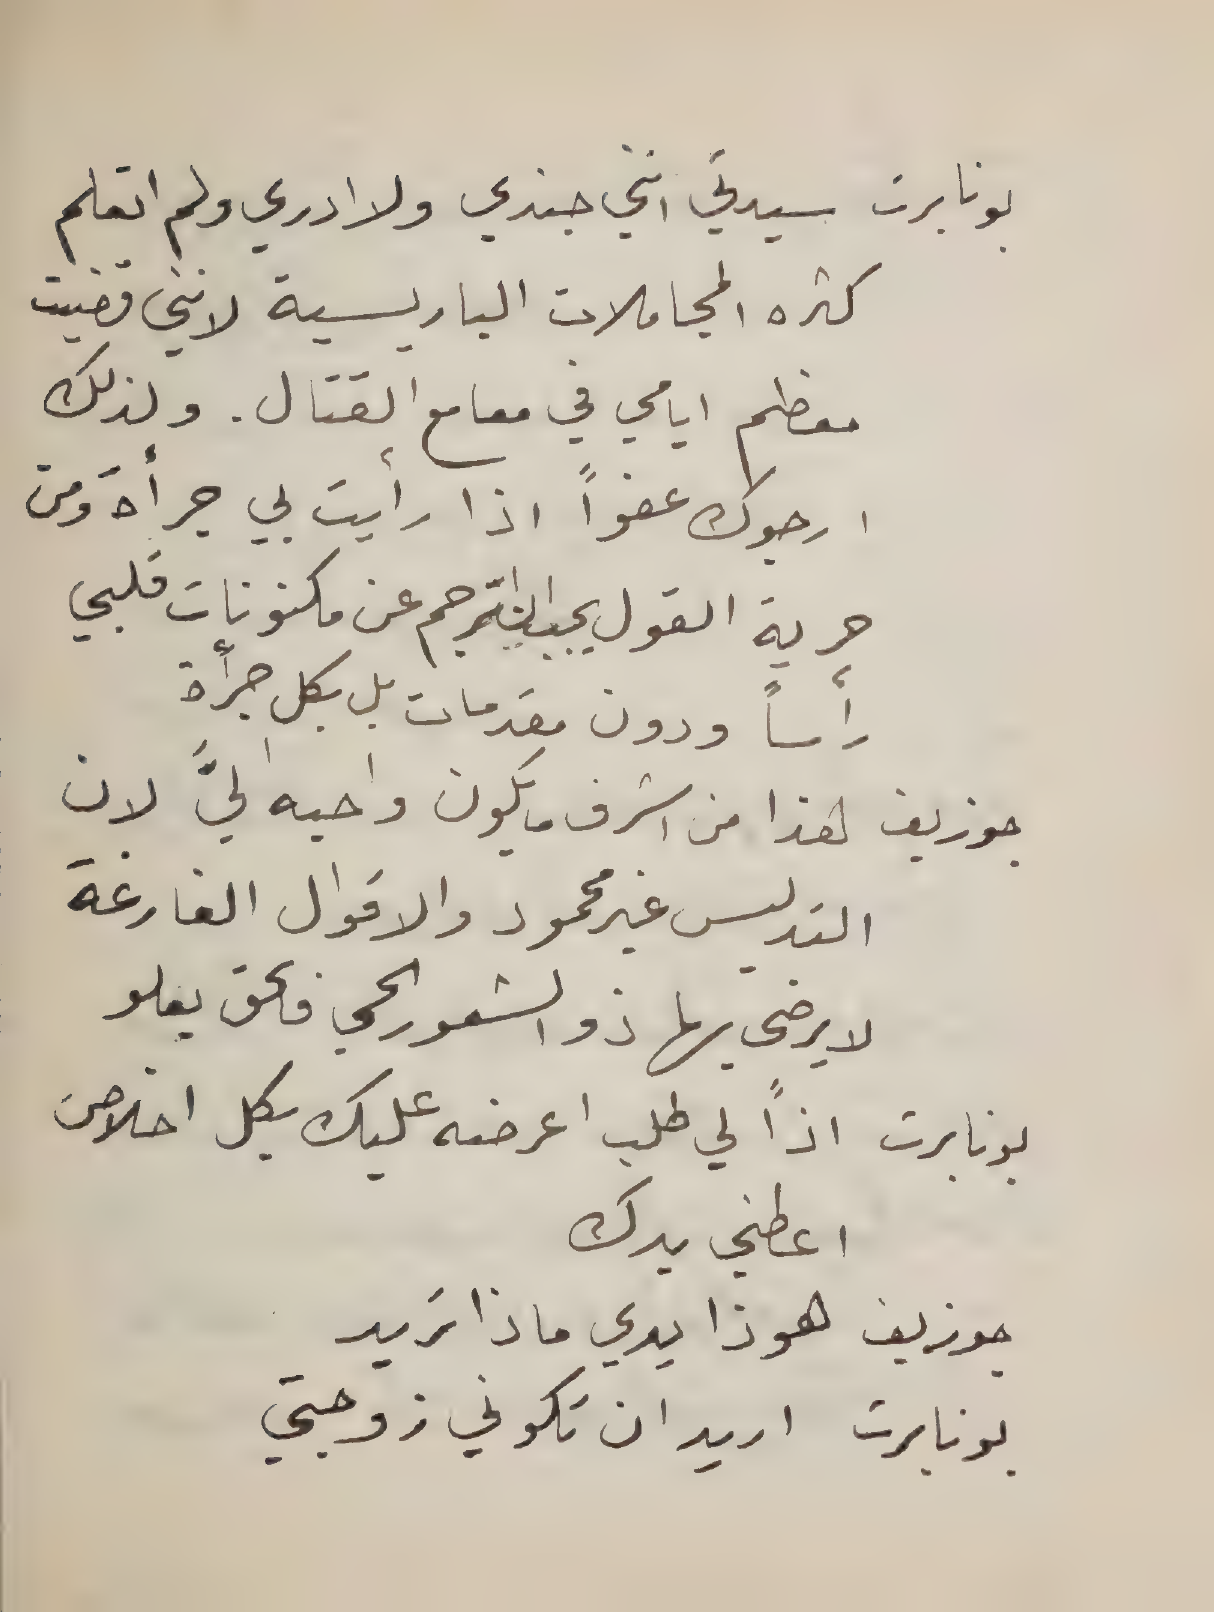 بونابرت سيدتي انني جندي ولا ادري ولم اتعلم
كثره المجاملات الباريسية لانني قضيت
معظم ايامي في معامع القتال. ولذلك
ارجوك عفواً اذا رأيت بي جرأة ومن
حرية القول يجب ان اترجم عن مكنونات قلبي
رأساً ودون مقدمات بل بكل جرأة
جوزيف هذا من اشرف مايكون واحبه اليَّ لان
التدليس غير محمود والاقوال الفارغة
لا يرضى بها ذو الشعور الحي فالحق يعلو
بونابرت اذاً لي طلب اعرضه عليك بكل اخلاص
اعطني يدك
جوزيف هوذا يدي ماذا تريد
بونابرت اريد ان تكوني زوجتي